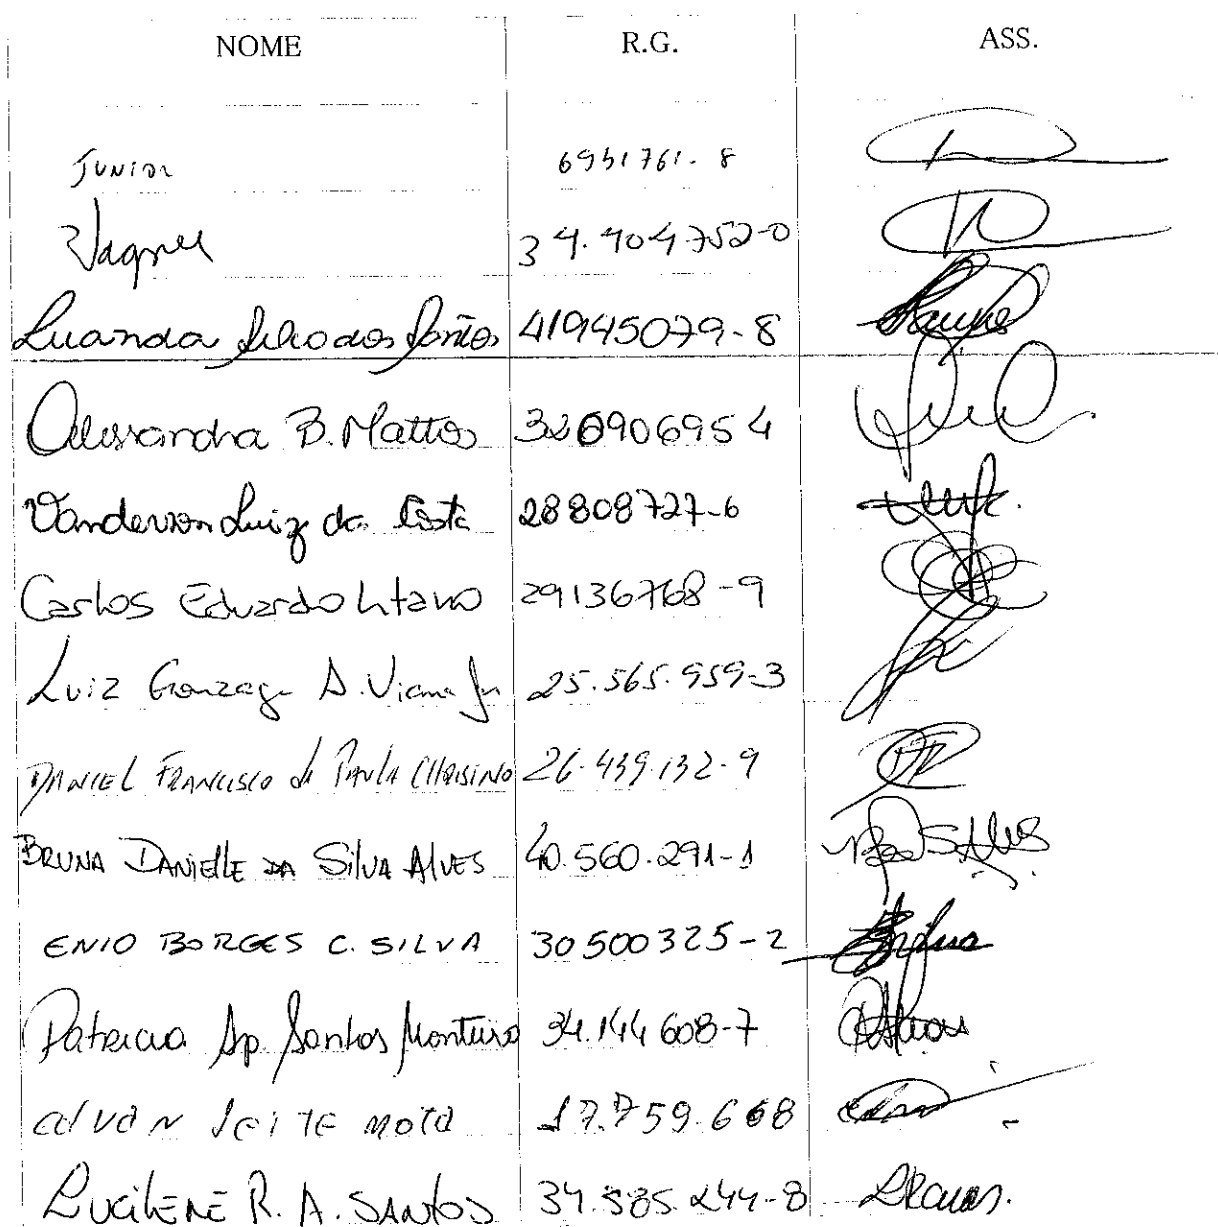 NOME R.G. ASS.
JUNIOR 6951761-8
Vagner 34.404752-0
Luanda dos Santos 41945079-8
Alessandra B. Mattos 320906954
Vanderson Luiz da Costa 28808727-6
Carlos Eduardo 29136768-9
Luiz Gonzaga A. Viana Jr 25.565.959-3
DANIEL FRANCISCO de PAULA 26.439.132-9
BRUNA DANIELLE DA SILVA ALVES 40.560.291-1
ENIO BORGES C. SILVA 30500325-2
Patricia Ap. Santos Monteiro 34.144608-7
alvan leite mota 17.759.668
LUCILENE R. A. SANTOS 34.585.244-8